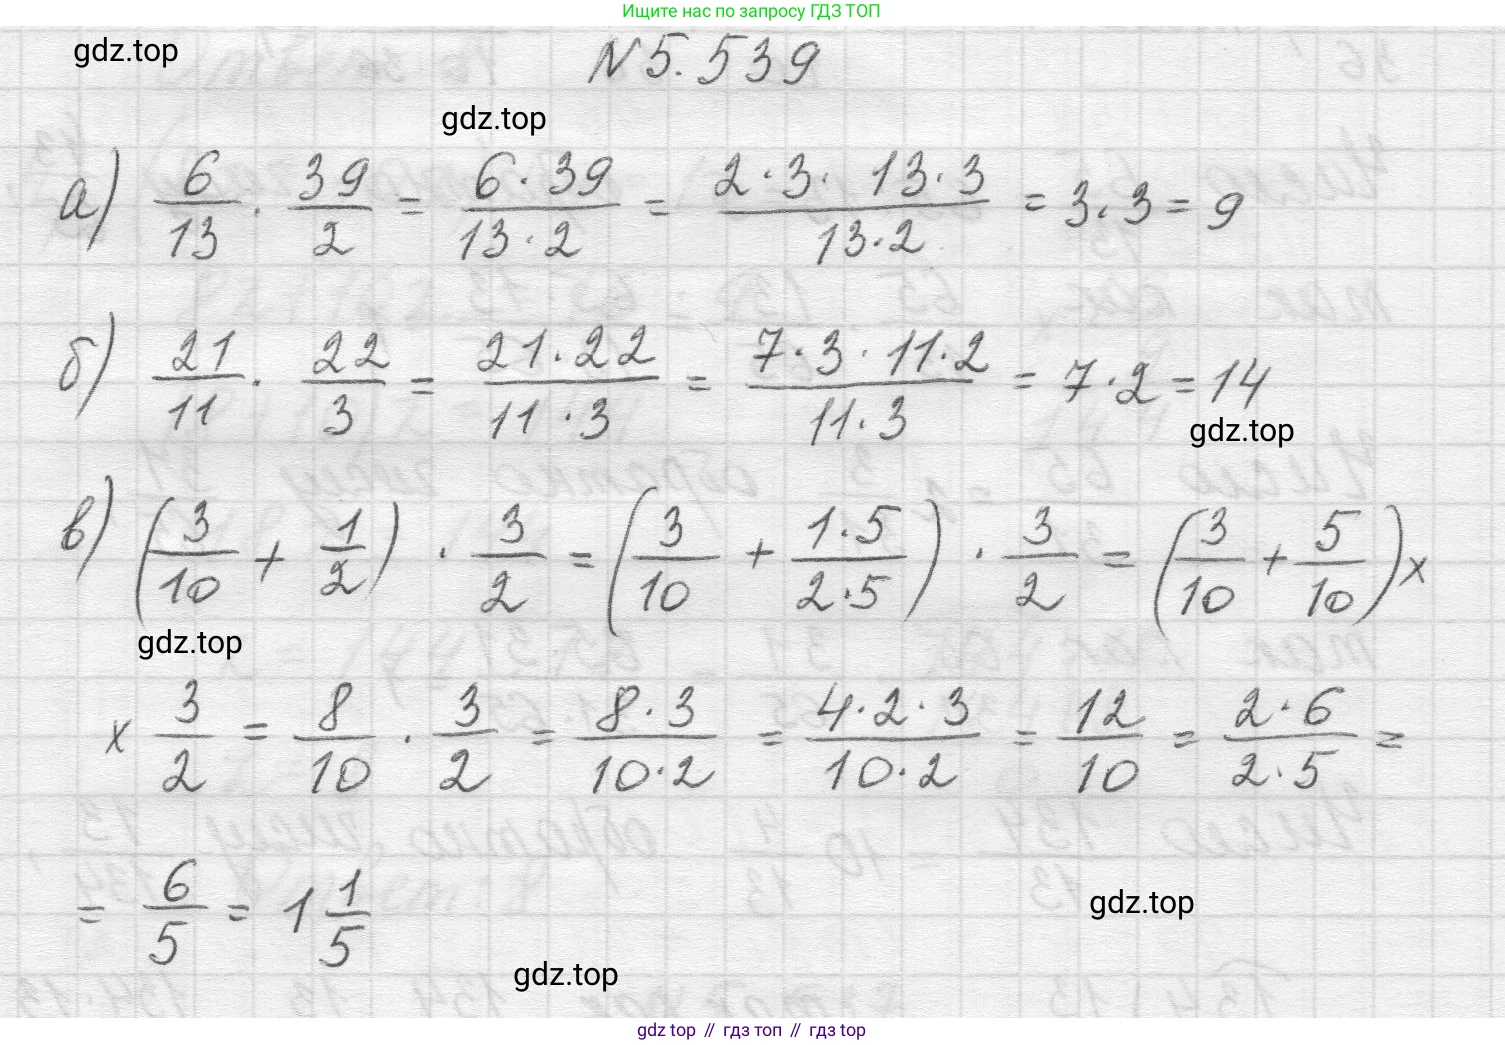 Ищите нас по запросу ГДЗ ТОП
gdz.top
N 5.539
gdz.top
а) 6/13 · 39/2 = 6·39/13·2 = 2·3·13·3/13·2 = 3·3 = 9
б) 21/11 · 22/3 = 21·22/11·3 = 7·3·11·2/11·3 = 7·2 = 14
gdz.top
в) (3/10 + 1/2) · 3/2 = (3/10 + 1·5/2·5) · 3/2 = (3/10 + 5/10) x
gdz.top
x 3/2 = 8/10 · 3/2 = 8·3/10·2 = 4·2·3/10·2 = 12/10 = 2·6/2·5 =
= 6/5 = 1 1/5
gdz.top
gdz.top
gdz top // гдз топ // гдз top